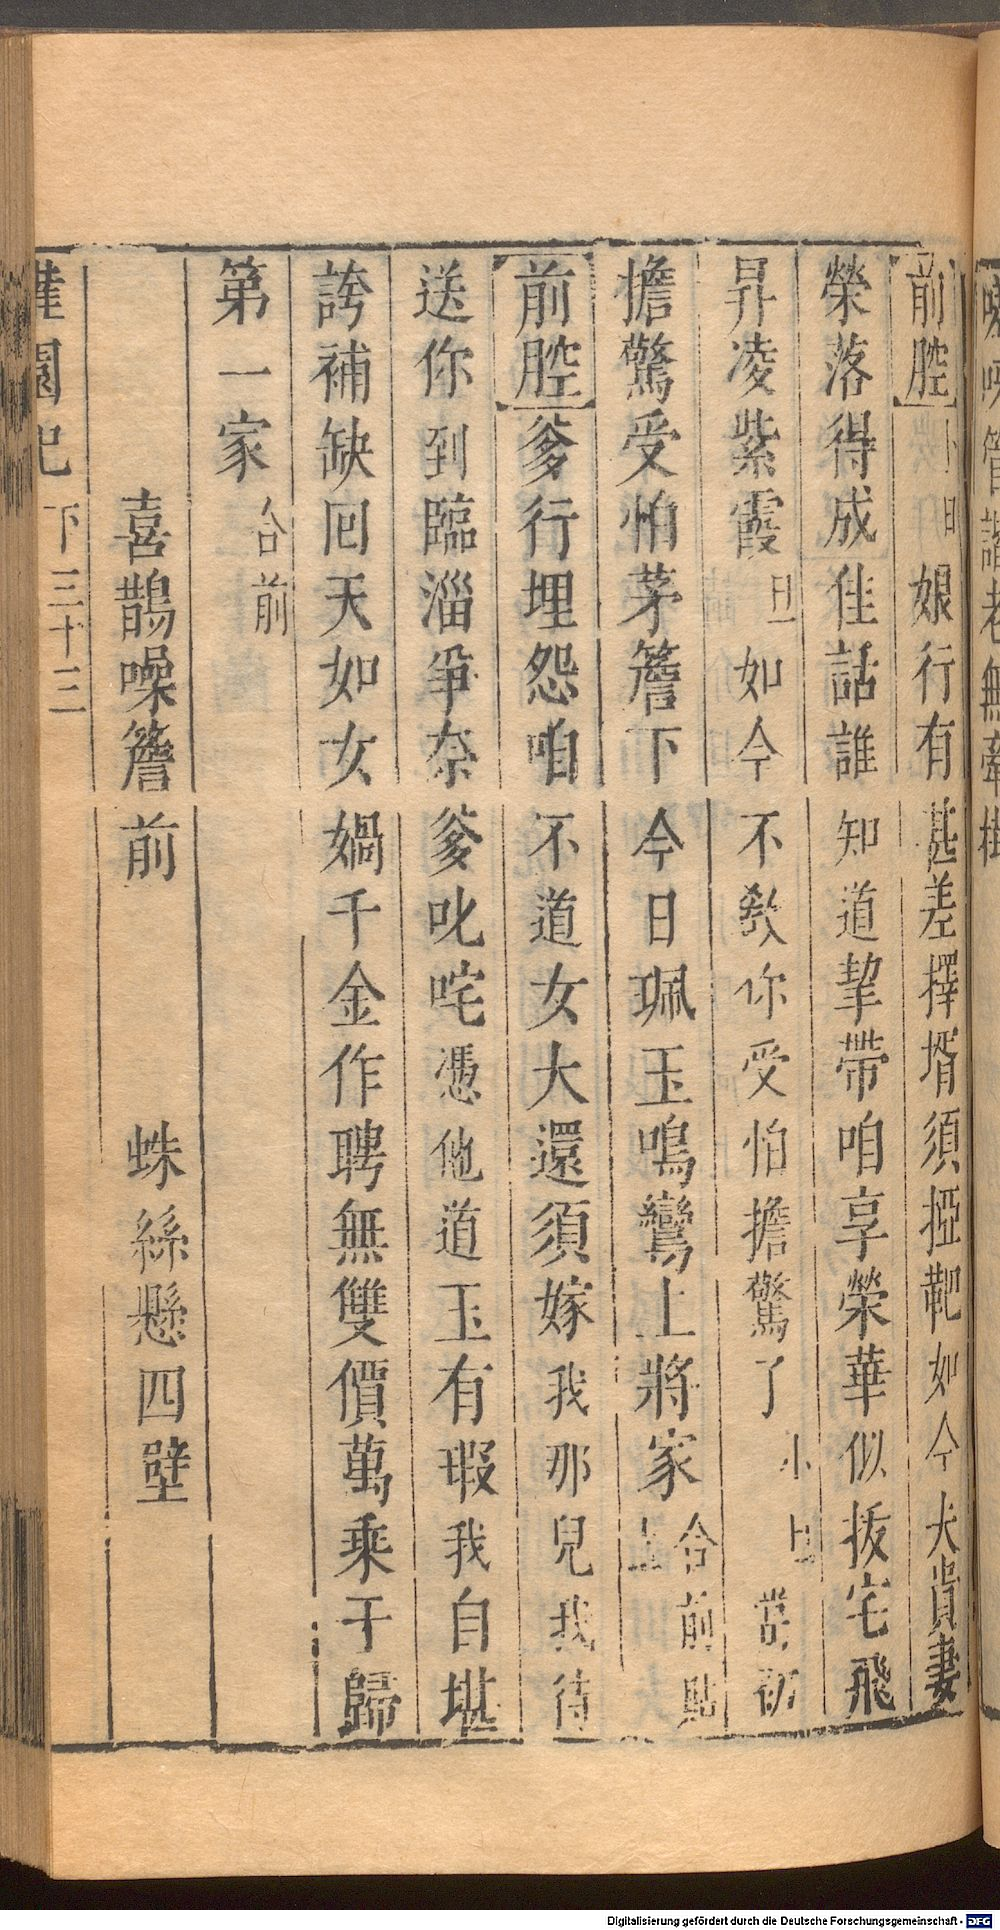 前腔 小旦 娘行有甚差擇壻須揑靶如今夫貴妻
榮落得成佳話誰知道挈帶咱享榮華似拔宅飛
昇凌紫霞旦如今不教你受怕擔驚了 小旦 當初
擔驚受怕茅簷下今日珮玉鳴鸞上將家合前貼上
前腔爹行埋怨咱不道女大還須嫁我那兒我待
送你到臨淄爭奈爹叱咤憑他道玉有瑕我自堪
誇補缺囘天如女媧千金作聘無雙價萬乘于歸
第一家合前
喜鵲噪簷前 蛛絲懸四壁
園記 下 三十三
Digitalisierung gefördert durch die Deutsche Forschungsgemeinschaft - DFG